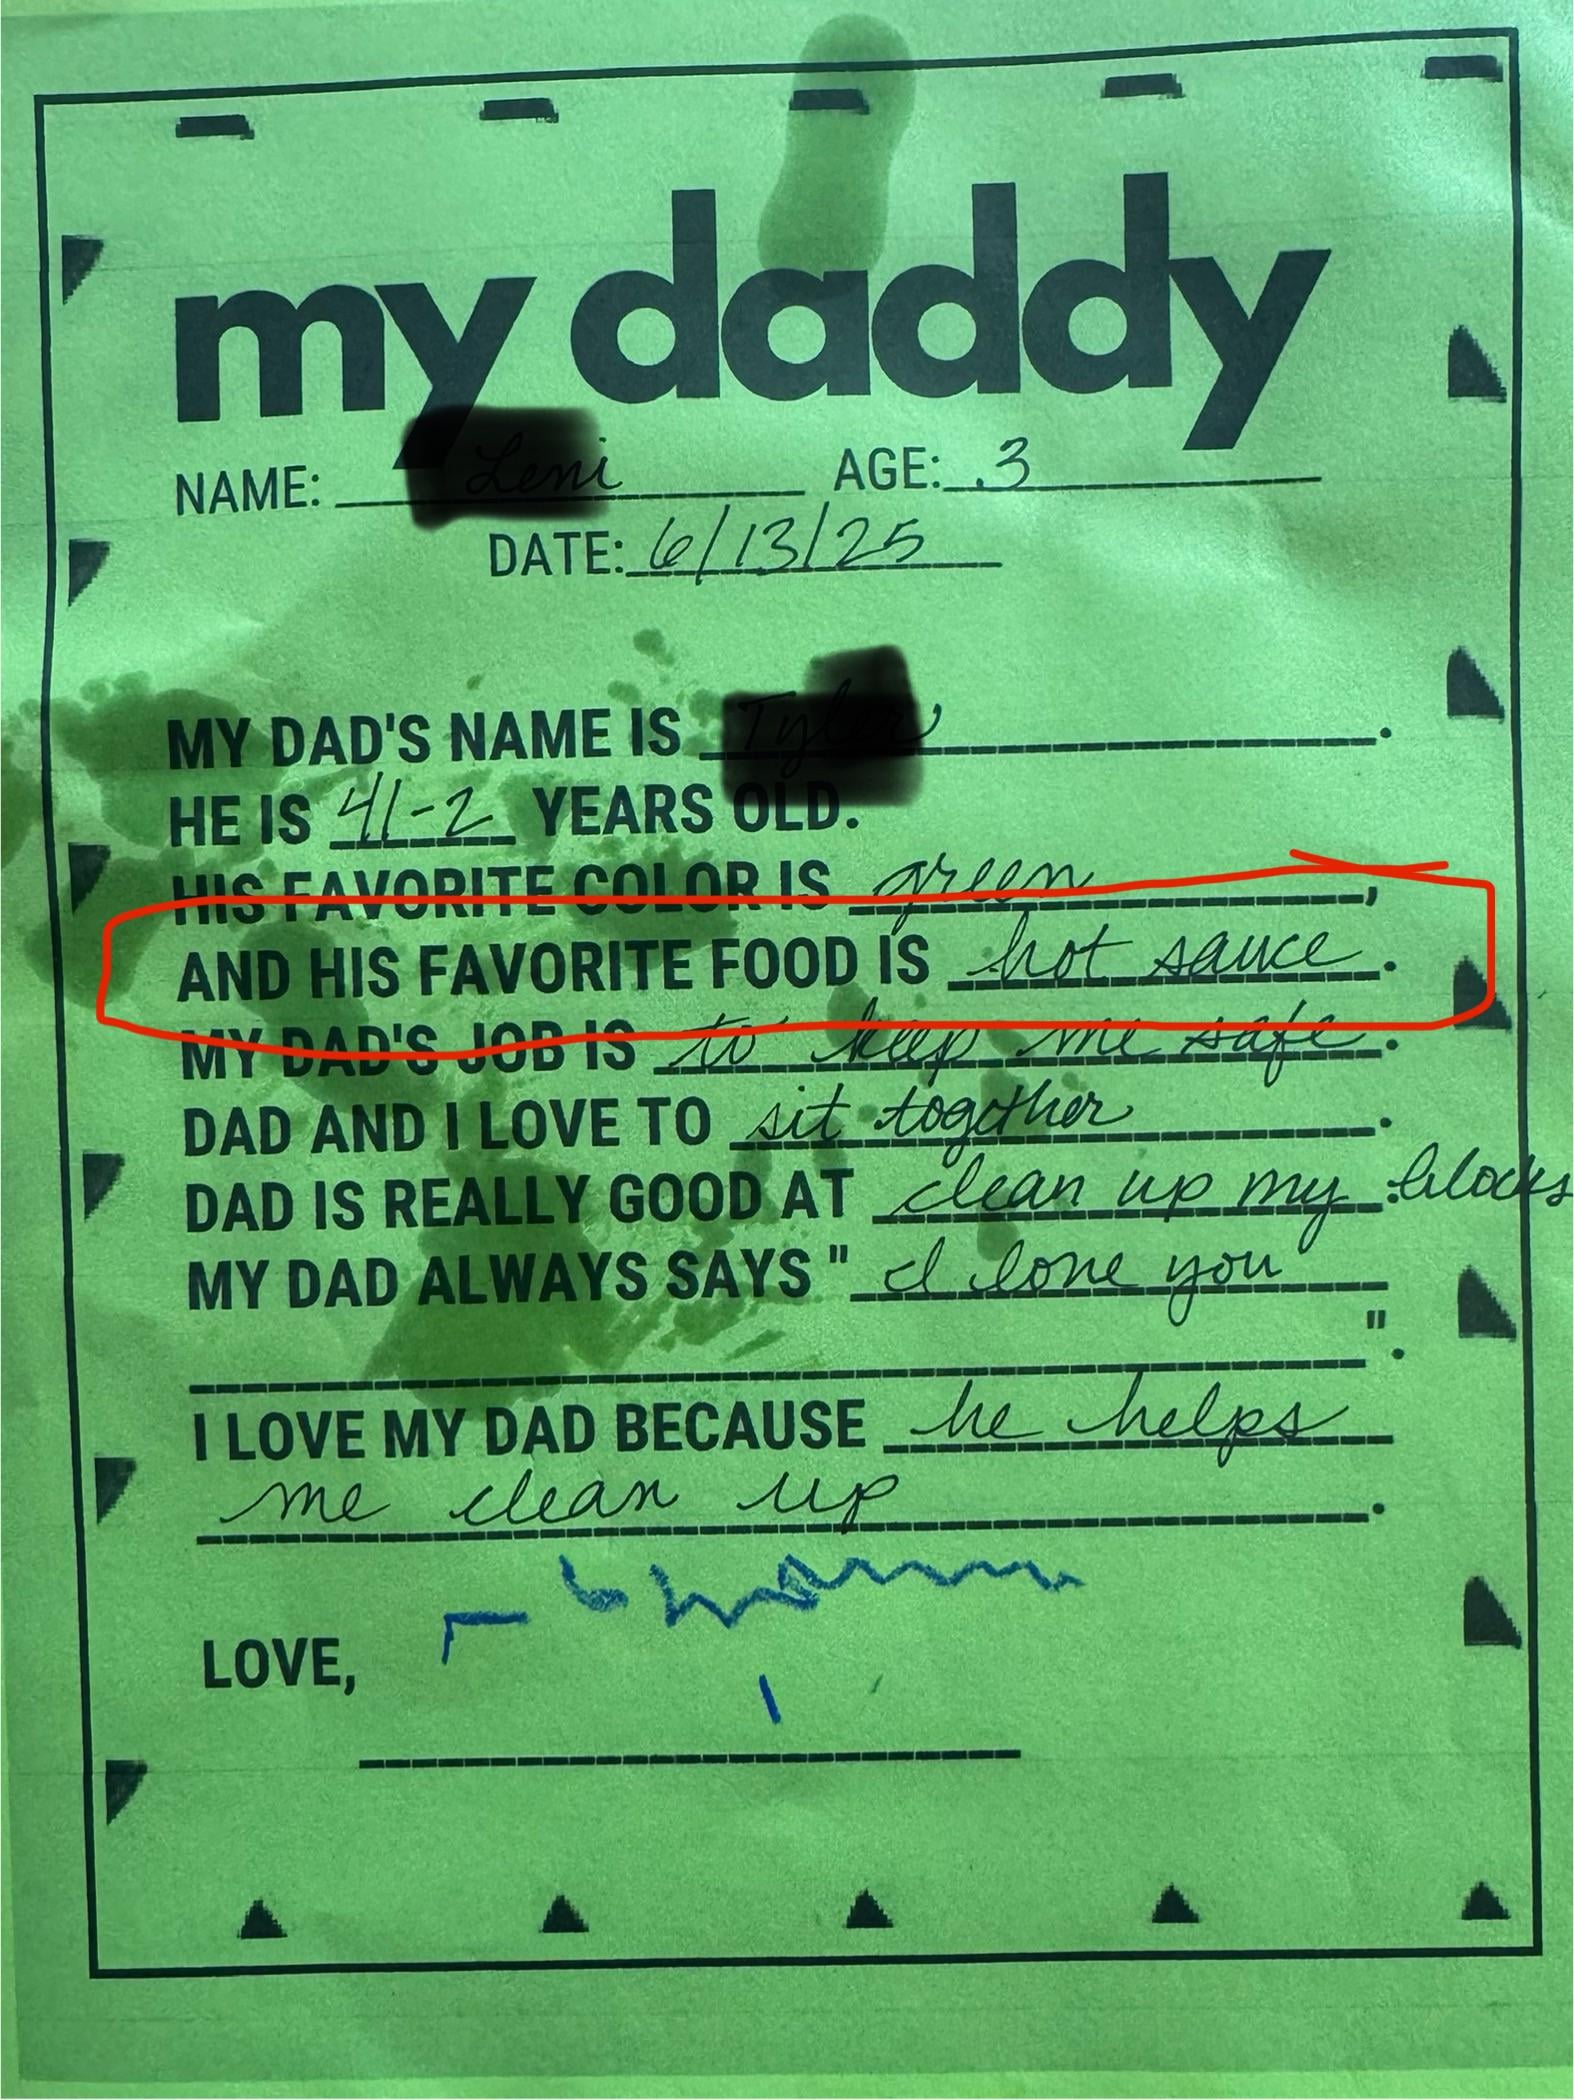 my daddy
NAME: Leni AGE: 3
DATE: 6/13/25
MY DAD'S NAME IS Tyler.
HE IS 41-2 YEARS OLD.
HIS FAVORITE COLOR IS green,
AND HIS FAVORITE FOOD IS hot sauce.
MY DAD'S JOB IS to keep me safe.
DAD AND I LOVE TO sit together.
DAD IS REALLY GOOD AT clean up my blocks.
MY DAD ALWAYS SAYS " I love you
".
I LOVE MY DAD BECAUSE he helps
me clean up.
LOVE,